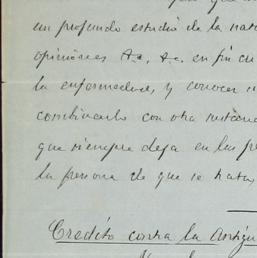 un profundo estudio de la natu
opiniones &c, &c. en fin cu
la enfermedad, y conocer
combinarlo con otra
que siempre deja en las
la persona de que se trata
Credito contra la Antigu